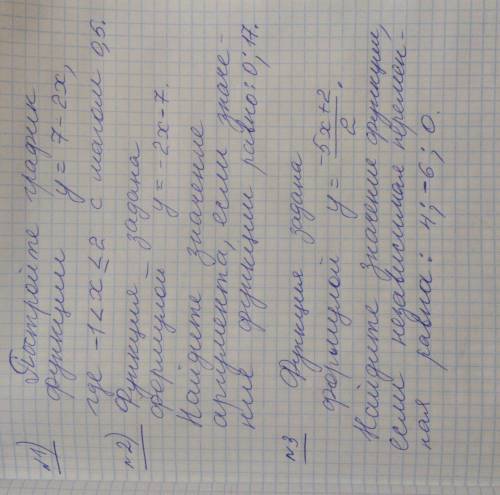 №1) Постройте график
функции y = 7 - 2x,
где -1 < x ≤ 2 с шагом 0,5.
№2) Функция задана
формулой y = -2x - 7.
Найдите значение
аргумента, если значе-
ние функции равно: 0; 17.
№3 Функция задана
формулой y = (-5x + 2)/2.
Найдите значение функции,
если независимая перемен-
ная равна: 4; -6; 0.